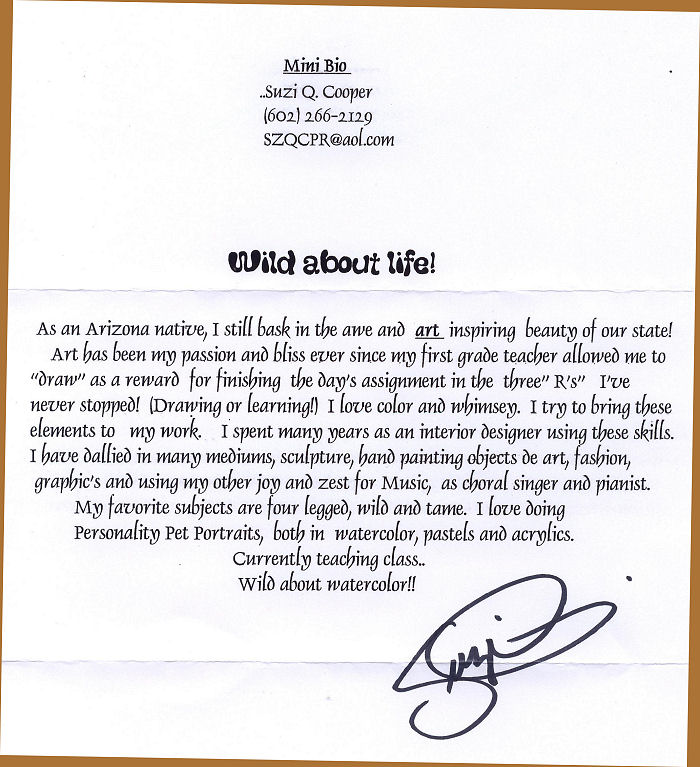 Mini Bio
..Suzi Q. Cooper
(602) 266-2129
SZQCPR@aol.com
Wild about life!
As an Arizona native, I still bask in the awe and art inspiring beauty of our state!
Art has been my passion and bliss ever since my first grade teacher allowed me to
"draw" as a reward for finishing the day's assignment in the three" R's" I've
never stopped! (Drawing or learning!) I love color and whimsey. I try to bring these
elements to my work. I spent many years as an interior designer using these skills.
I have dallied in many mediums, sculpture, hand painting objects de art, fashion,
graphic's and using my other joy and zest for Music, as choral singer and pianist.
My favorite subjects are four legged, wild and tame. I love doing
Personality Pet Portraits, both in watercolor, pastels and acrylics.
Currently teaching class..
Wild about watercolor!!
Suzi